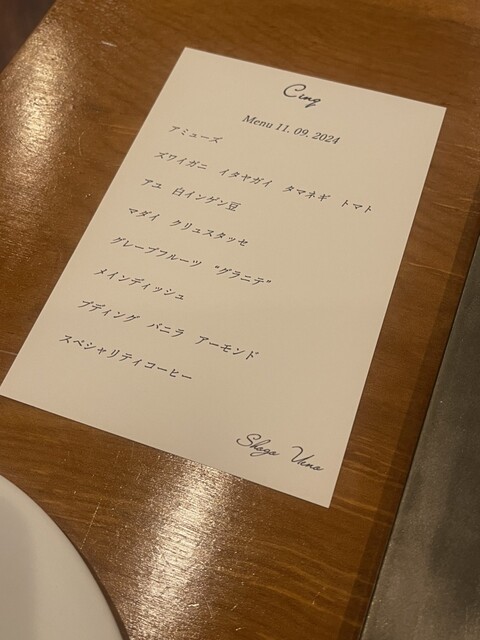 Cinq
Menu 11. 09. 2024
アミューズ
ズワイガニ イタヤガイ タマネギ トマト
アユ 白インゲン豆
マダイ クリュスタッセ
グレープフルーツ “グラニテ”
メインディッシュ
プディング バニラ アーモンド
スペシャリティコーヒー
Shogo Ueno